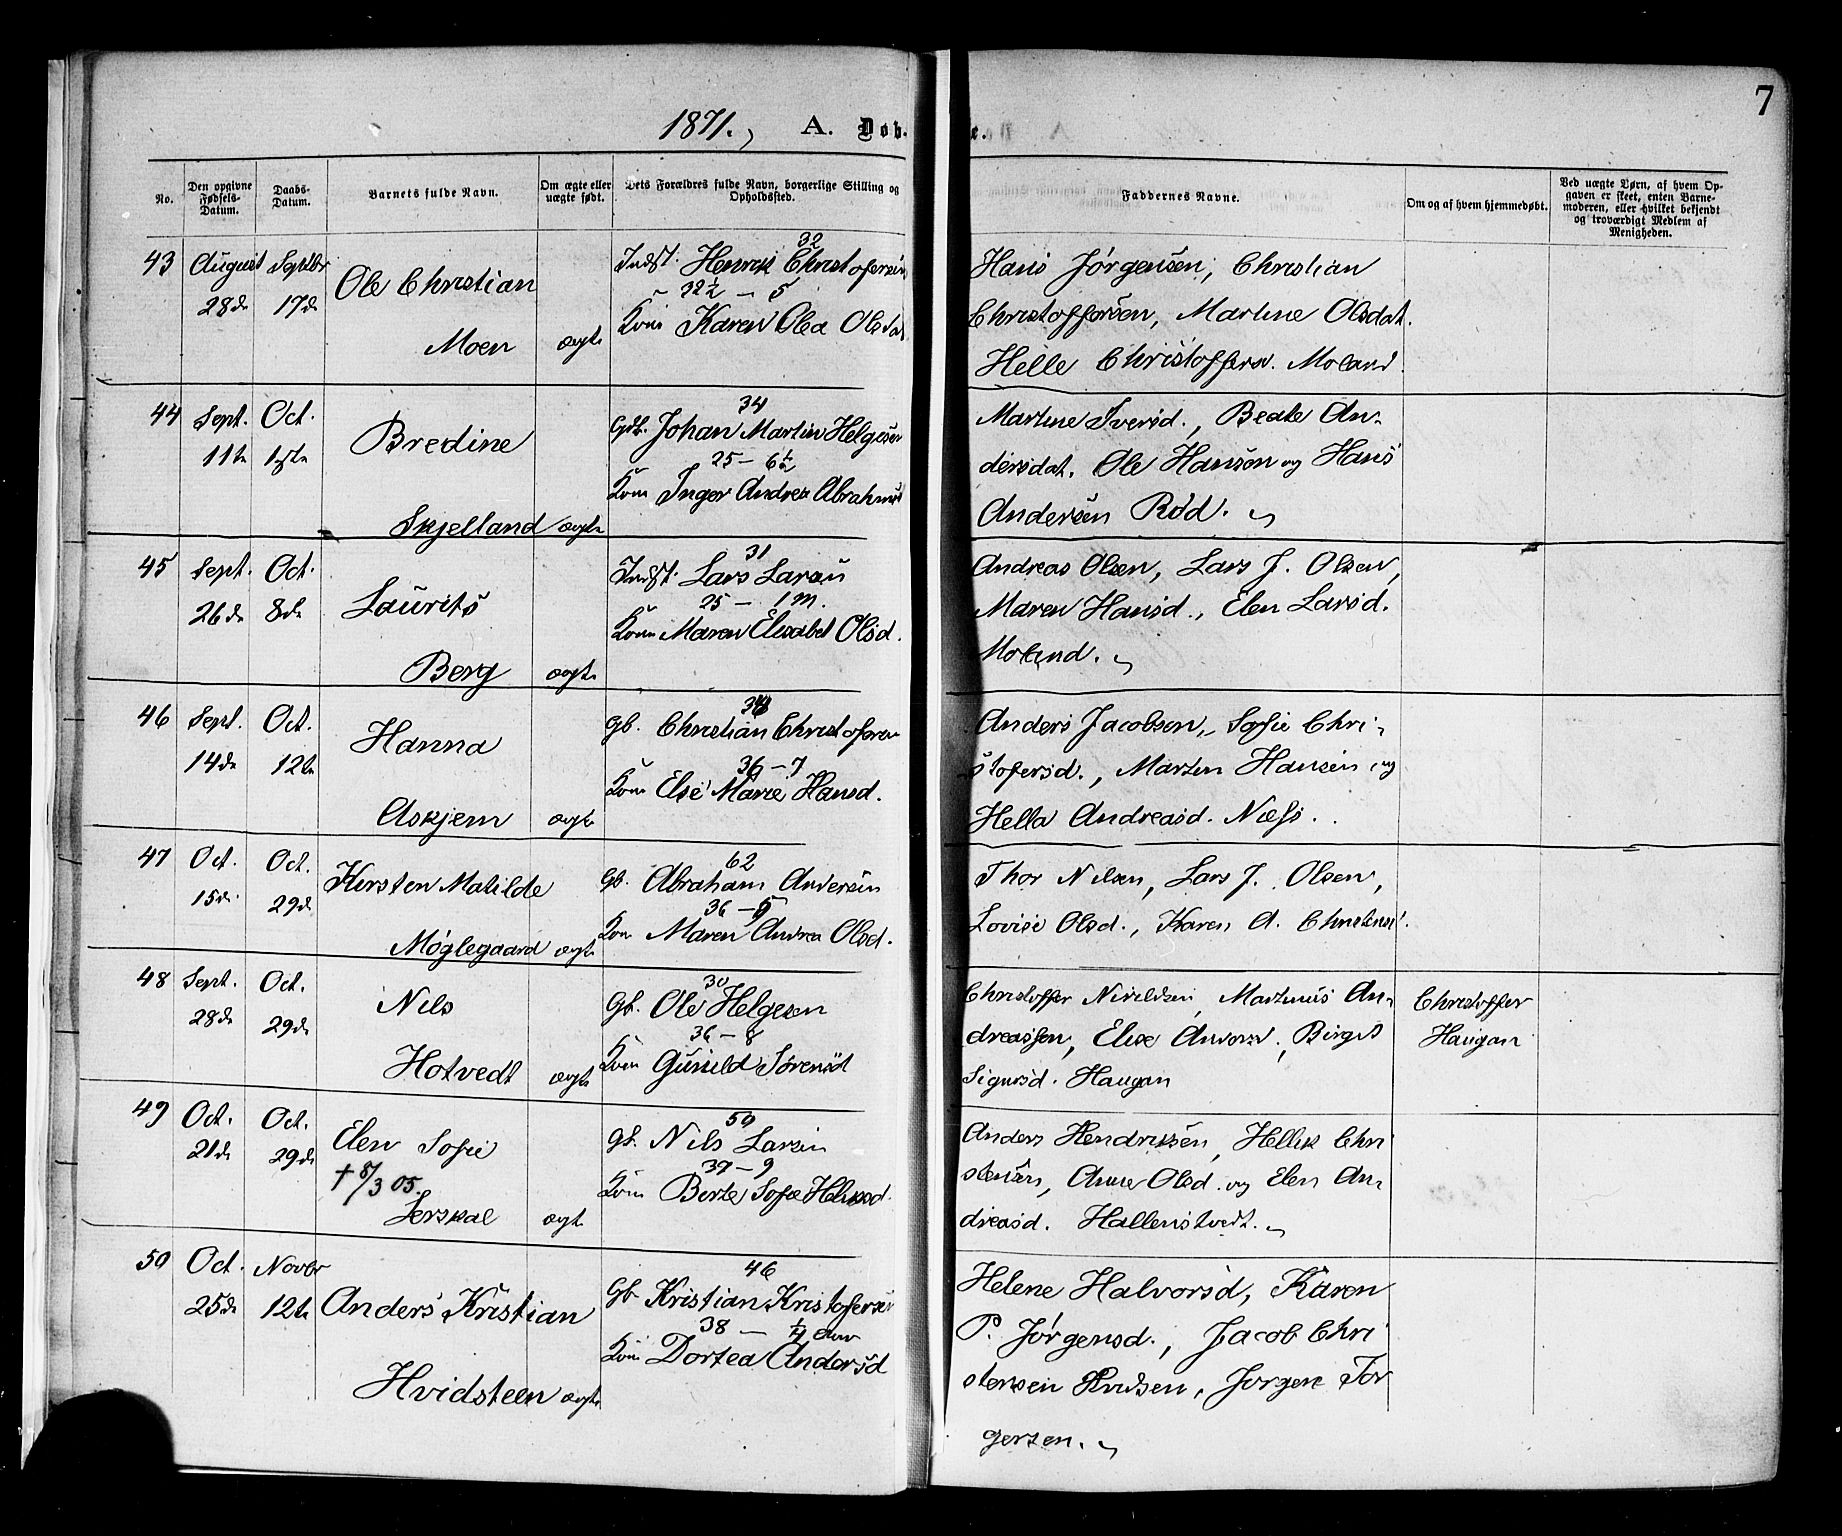 7
1871. A. Døb-
e.
No.
Den opgivne Fødsels-Datum.
Daabs-Datum.
Barnets fulde Navn.
Om ægte eller uægte født.
Dets Forældres fulde Navn, borgerlige Stilling og Opholdssted.
Faddernes Navne.
Om og af hvem hjemmedøbt.
Ved uægte Børn, af hvem Opgaven er skeet, enten Barnemoderen, eller hvilket bekjendt og troværdigt Medlem af Menigheden.
43 August 28de Septbr 17de
Ole Christian
Moen ægte
32
Indst. Henrik Christofersen
32½ – 5
Kone Karen Olea Olsdat
Hans Jørgensen, Christian
Christoffersen, Martine Olsdat.
Helle Christoffersn. Moland.
44 Sept. 11te Oct. 1ste
Bredine
Skjelland ægte
34
Gdb. Johan Martin Helgesen
25 – 6½
Kone Inger Andrea Abrahms
Martine Iversd., Beate An-
dersdat. Ole Hansen og Hans
Andersen Rød.
45 Sept. 26de Oct. 8de
Laurits
Berg ægte
31
Indst. Lars Larsen
25 – 1 M.
Kone Maren Elisabet Olsd.
Andreas Olsen, Lars J. Olsen,
Maren Hansd., Elen Larsd.
Moland.
46 Sept. 14de Oct. 12te
Hanna
Askjem ægte
Gb. Christian Christofersen
36 – 7
Kone Else Marie Hansd.
Anders Jacobsen, Sofie Chri-
stofersd., Martin Hansen og
Hella Andreasd. Næss.
47 Oct. 15de Oct. 29de
Kirsten Matilde
Møglegaard ægte
62
Gb. Abraham Andersen
36 – 5
Kone Maren Andrea Olsd.
Thor Nilsen, Lars J. Olsen,
Lovise Olsd., Karen A. Christensd.
48 Sept. 28de Oct. 29de
Nils
Hotvedt ægte
30
Gb. Ole Helgesen
36 – 8
Kone Gunild Sørensdt
Christoffer Martinus An-
dreassen, Elise Andersd., Birgit
Sigursd. Haugan
Christoffer
Haugan
49 Oct. 21de Oct. 29de
Elen Sofie
† 8/3 05.
Jerskal ægte
50
Gb. Nils Larsen
39 – 9
Kone Berte Sofie Helliksd.
Anders Hendriksen, Hellik Chri
stensen, Anne Olsd. og Elen An-
dreasd. Hallenstvedt.
50 Oct. 25de Novbr 12te
Anders Kristian
Hvidsteen ægte
46
Gb. Kristian Kristofersen
38 – ¼ Aar
Kone Dortea Andersd
Helene Halvorsd, Karen
P. Jørgensd., Jacob Chri
stensen Jørgen Tor
gersen.